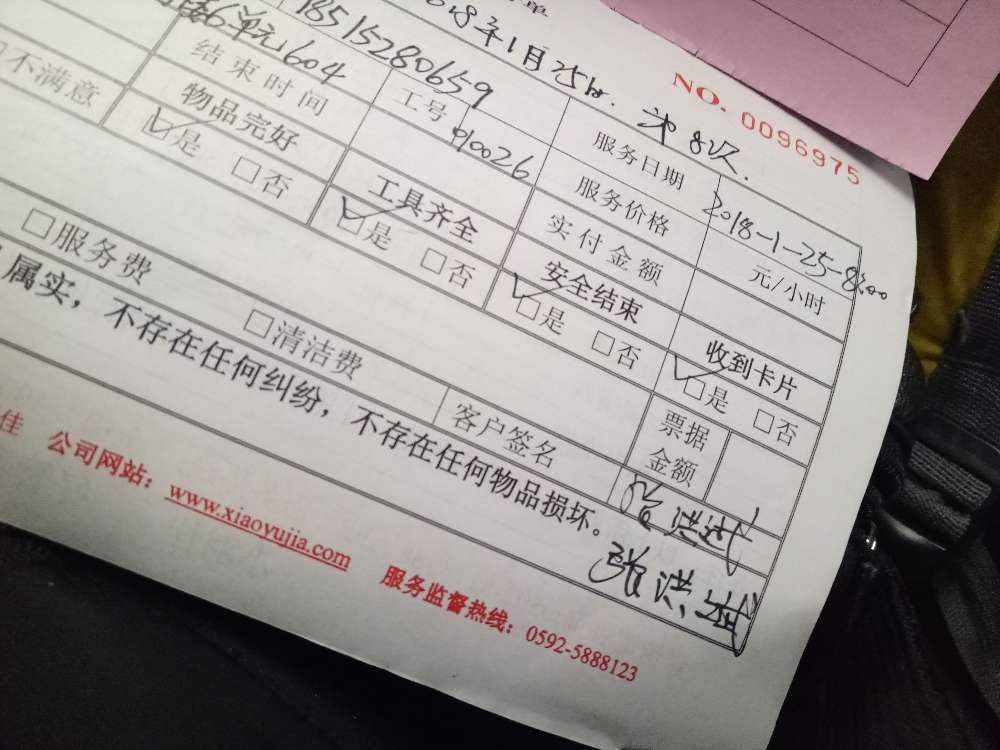 单
NO. 0096975
2018年1月25日. 冰8次.
18515280659
服务日期 2018-1-25-8:00
6单元604
工号 910026
服务价格 元/小时
结束时间
实付金额
不满意
物品完好 ☑是 □否
工具齐全 ☑是 □否
安全结束 ☑是 □否
收到卡片 ☑是 □否
□服务费 □清洁费
客户签名
票据金额
属实，不存在任何纠纷，不存在任何物品损坏。
佳 公司网站：www.xiaoyujia.com 服务监督热线：0592-5888123